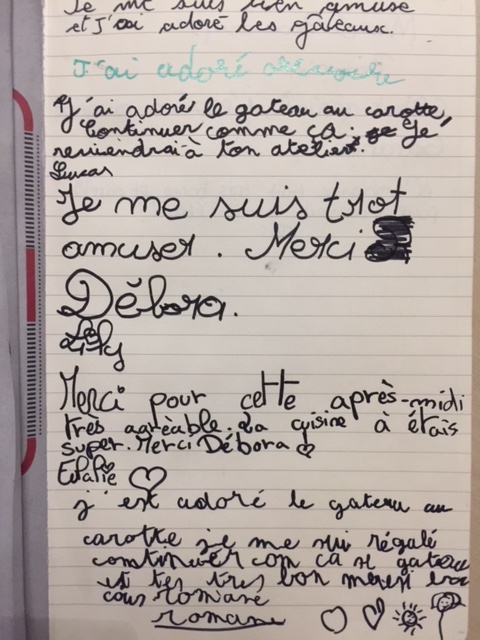 Je me suis bien amuse
et J'ai adoré les gâteaux.
J'ai adoré
J'ai adoré le gateau au carotte,
Continuer comme ça. Je
reviendrai à ton atelier.
Lucas
Je me suis trot
amuser. Merci
Débora.
Lily
Merci pour cette après-midi
très agrèable. La cuisine à étais
super. Merci Débora
Eulalie
j'est adoré le gateau au
carotte je me sui régalé
continuer com ça se gateau
et tès très bon mersi
cous romane
romane